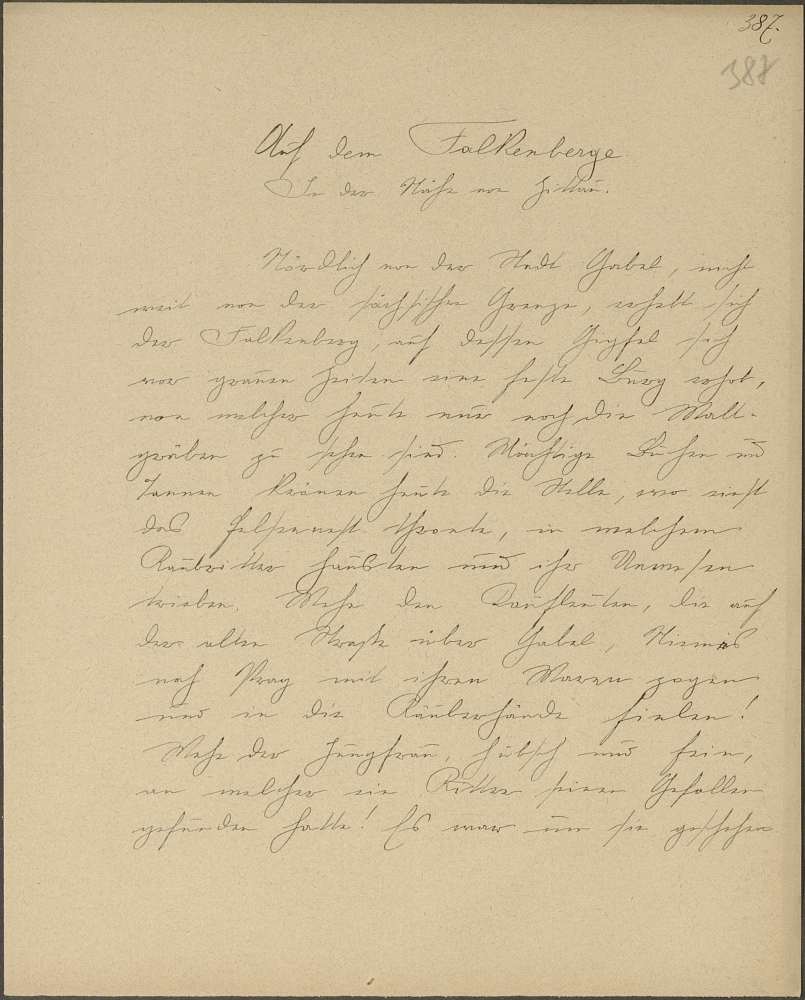 387.
388
Auf dem Falkenberge
In der Nähe von Zittau.
Nördlich von der Stadt Gabel, nicht
weit von der sächsischen Grenze, erhebt sich
der Falkenberg, auf dessen Gipfel sich
vor grauen Zeiten eine feste Burg erhob,
von welcher heute nur noch die Wall-
gräben zu sehen sind. Mächtige Buchen und
Tannen krönen heute die Stelle, wo einst
das Felsennest thronte, in welchem
Raubritter hausten und ihr Unwesen
trieben. Wehe den Kaufleuten, die auf
der alten Straße über Gabel, Niemes
nach Prag mit ihren Waren zogen
und in die Räuberhände fielen!
Wehe der Jungfrau, hübsch und fein,
an welcher ein Ritter seinen Gefallen
gefunden hatte! Es war um sie geschehen